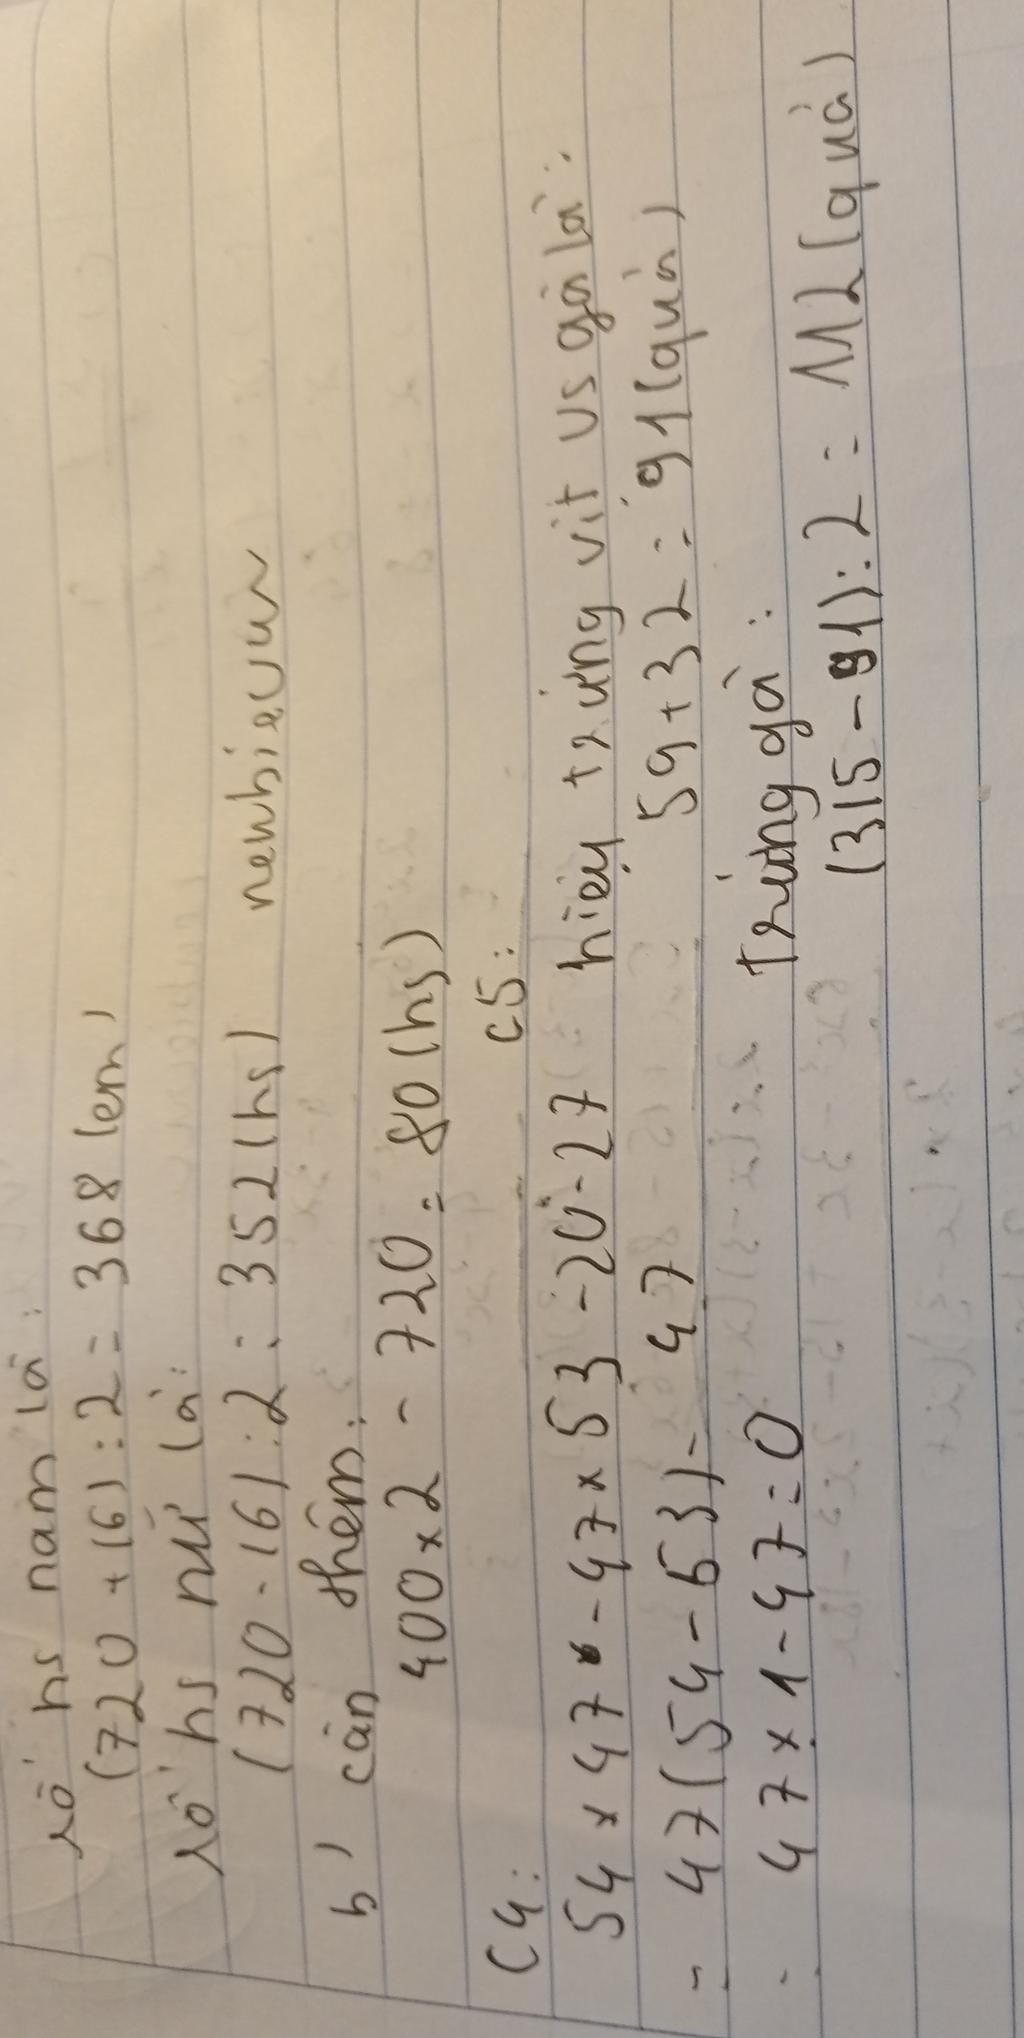 số hs nam là:
(720 + 16) : 2 = 368 (em)
số hs nữ là:
(720 - 16) : 2 = 352 (hs)
newbiecuw
b) cần thêm:
400 x 2 - 720 = 80 (hs)
C4:
54 x 47 - 47 x 53 - 20 - 27
= 47 (54 - 53) - 47
= 47 x 1 - 47 = 0
C5:
hiệu trứng vịt vs gà là:
59 + 32 = 91 (quả)
Trứng gà:
(315 - 91) : 2 = 112 (quả)